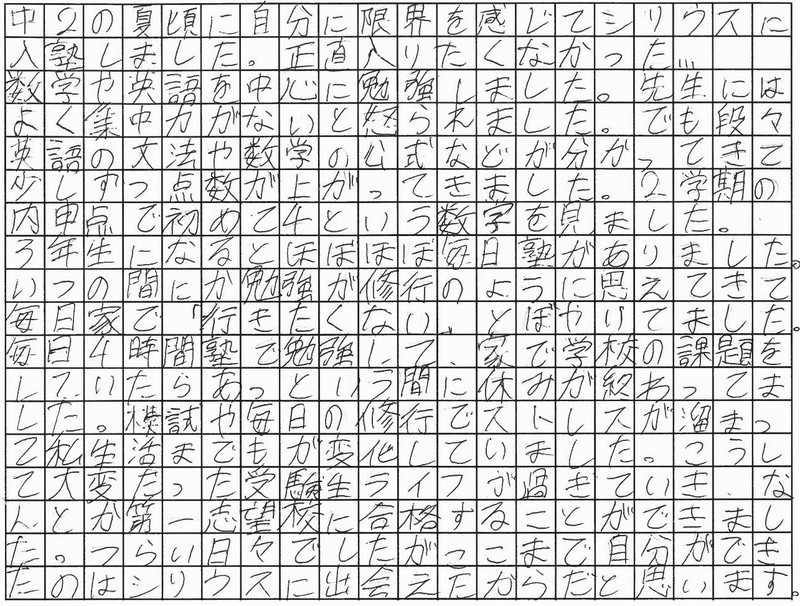 中2の夏頃に自分に限界を感じてシリウスに
入塾しました。正直入りたくなかった…
数学や英語を中心に勉強しました。先生には
よく集中力がないと怒られました。でも段々
英語の文法や数学の公式などが分かってきて
少しずつ点数が上がってきました。2学期の
内申点で初めて4という数字を見ました。
3年生になるとほぼほぼ毎日塾がありました。
いつの間にか勉強が修行のように思えてきて
毎日家で「行きたくない」とぼやいてました。
毎日4時間塾で勉強して、家で学校の課題を
していたらあっという間に休みが終わってま
した。模試や毎日の修行でストレスが溜まっ
て私生活までもが変化していました。こうし
て大変だった受験生ライフが過ぎていき、な
んとか第一志望校に合格することができまし
た。つらい日々でしたがここまで自分ができ
たのはシリウスに出会えたからだと思います。